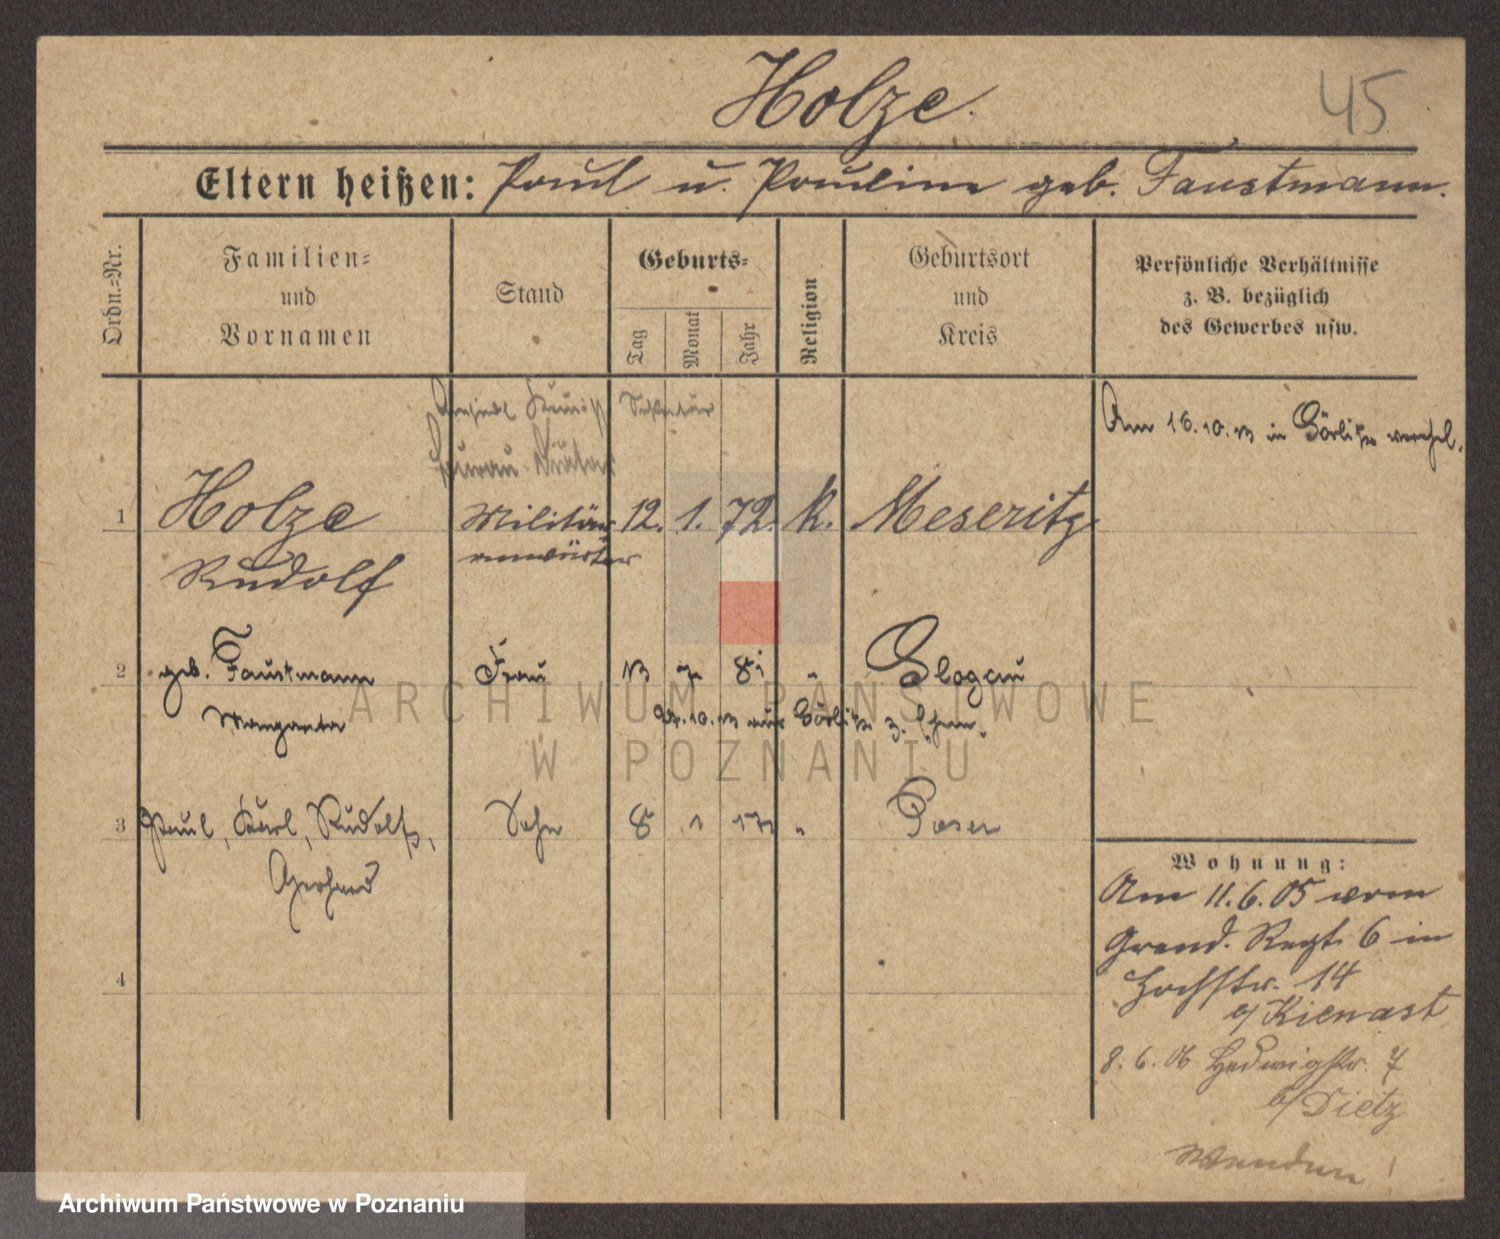 Holze.
45
Eltern heißen: Paul u. Pauline geb. Faustmann.
Ordn.-Nr.
Familien-
und
Vornamen
Stand
Geburts-
Tag
Monat
Jahr
Religion
Geburtsort
und
Kreis
Persönliche Verhältnisse
z. B. bezüglich
des Gewerbes usw.
Sekretär
Am 16.10. in Görlitz verehel.
1 Holze Militär 12. 1. 72. k. Meseritz
anwärter
Rudolf
2 geb. Faustmann Frau 13 81 " Glogau
Margareta
10. aus Görlitz z. Ehem.
3 Paul, Karl, Rudolf, Sohn 8 1 " Posen
Gerhard
4
Wohnung:
Am 11.6.05 vom
Grend. Regt. 6 in
Hochstr. 14
b/ Kienast
8.6.06 Hedwigstr. 7
b/ Dietz
Wenden!
ARCHIWUM PAŃSTWOWE
W POZNANIU
Archiwum Państwowe w Poznaniu